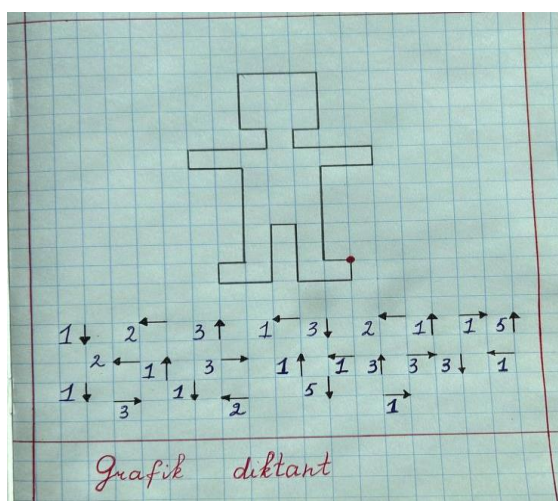 1↓ 2← 3↑ 1← 3↓ 2← 1↑ 1→ 5↑
2← 1↑ 3→ 1↑ 1← 3↑ 3→ 3↓ 1←
1↓ 3→ 1↓ 2← 5↓ 1→
Grafik diktant